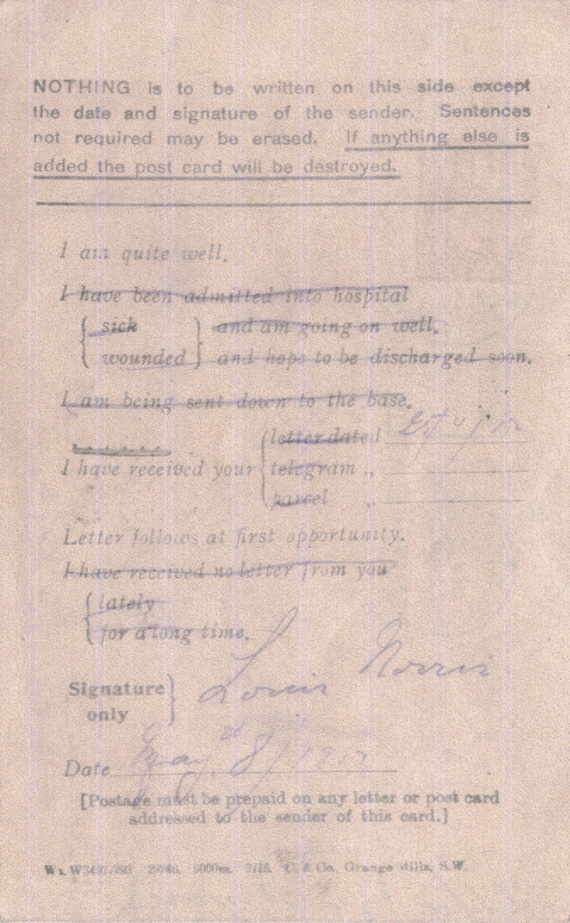 NOTHING is to be written on this side except
the date and signature of the sender. Sentences
not required may be erased. If anything else is
added the post card will be destroyed.
I am quite well.
I have been admitted into hospital
sick and am going on well.
wounded and hope to be discharged soon.
I am being sent down to the base.
letter dated
I have received your telegram „
parcel „
Letter follows at first opportunity.
I have received no letter from you
lately
for a long time.
Signature
only
Louis Norris
Date May 8/1917
[Postage must be prepaid on any letter or post card
addressed to the sender of this card.]
6000m. 9/16. C. & Co., Grange Mills, S.W.